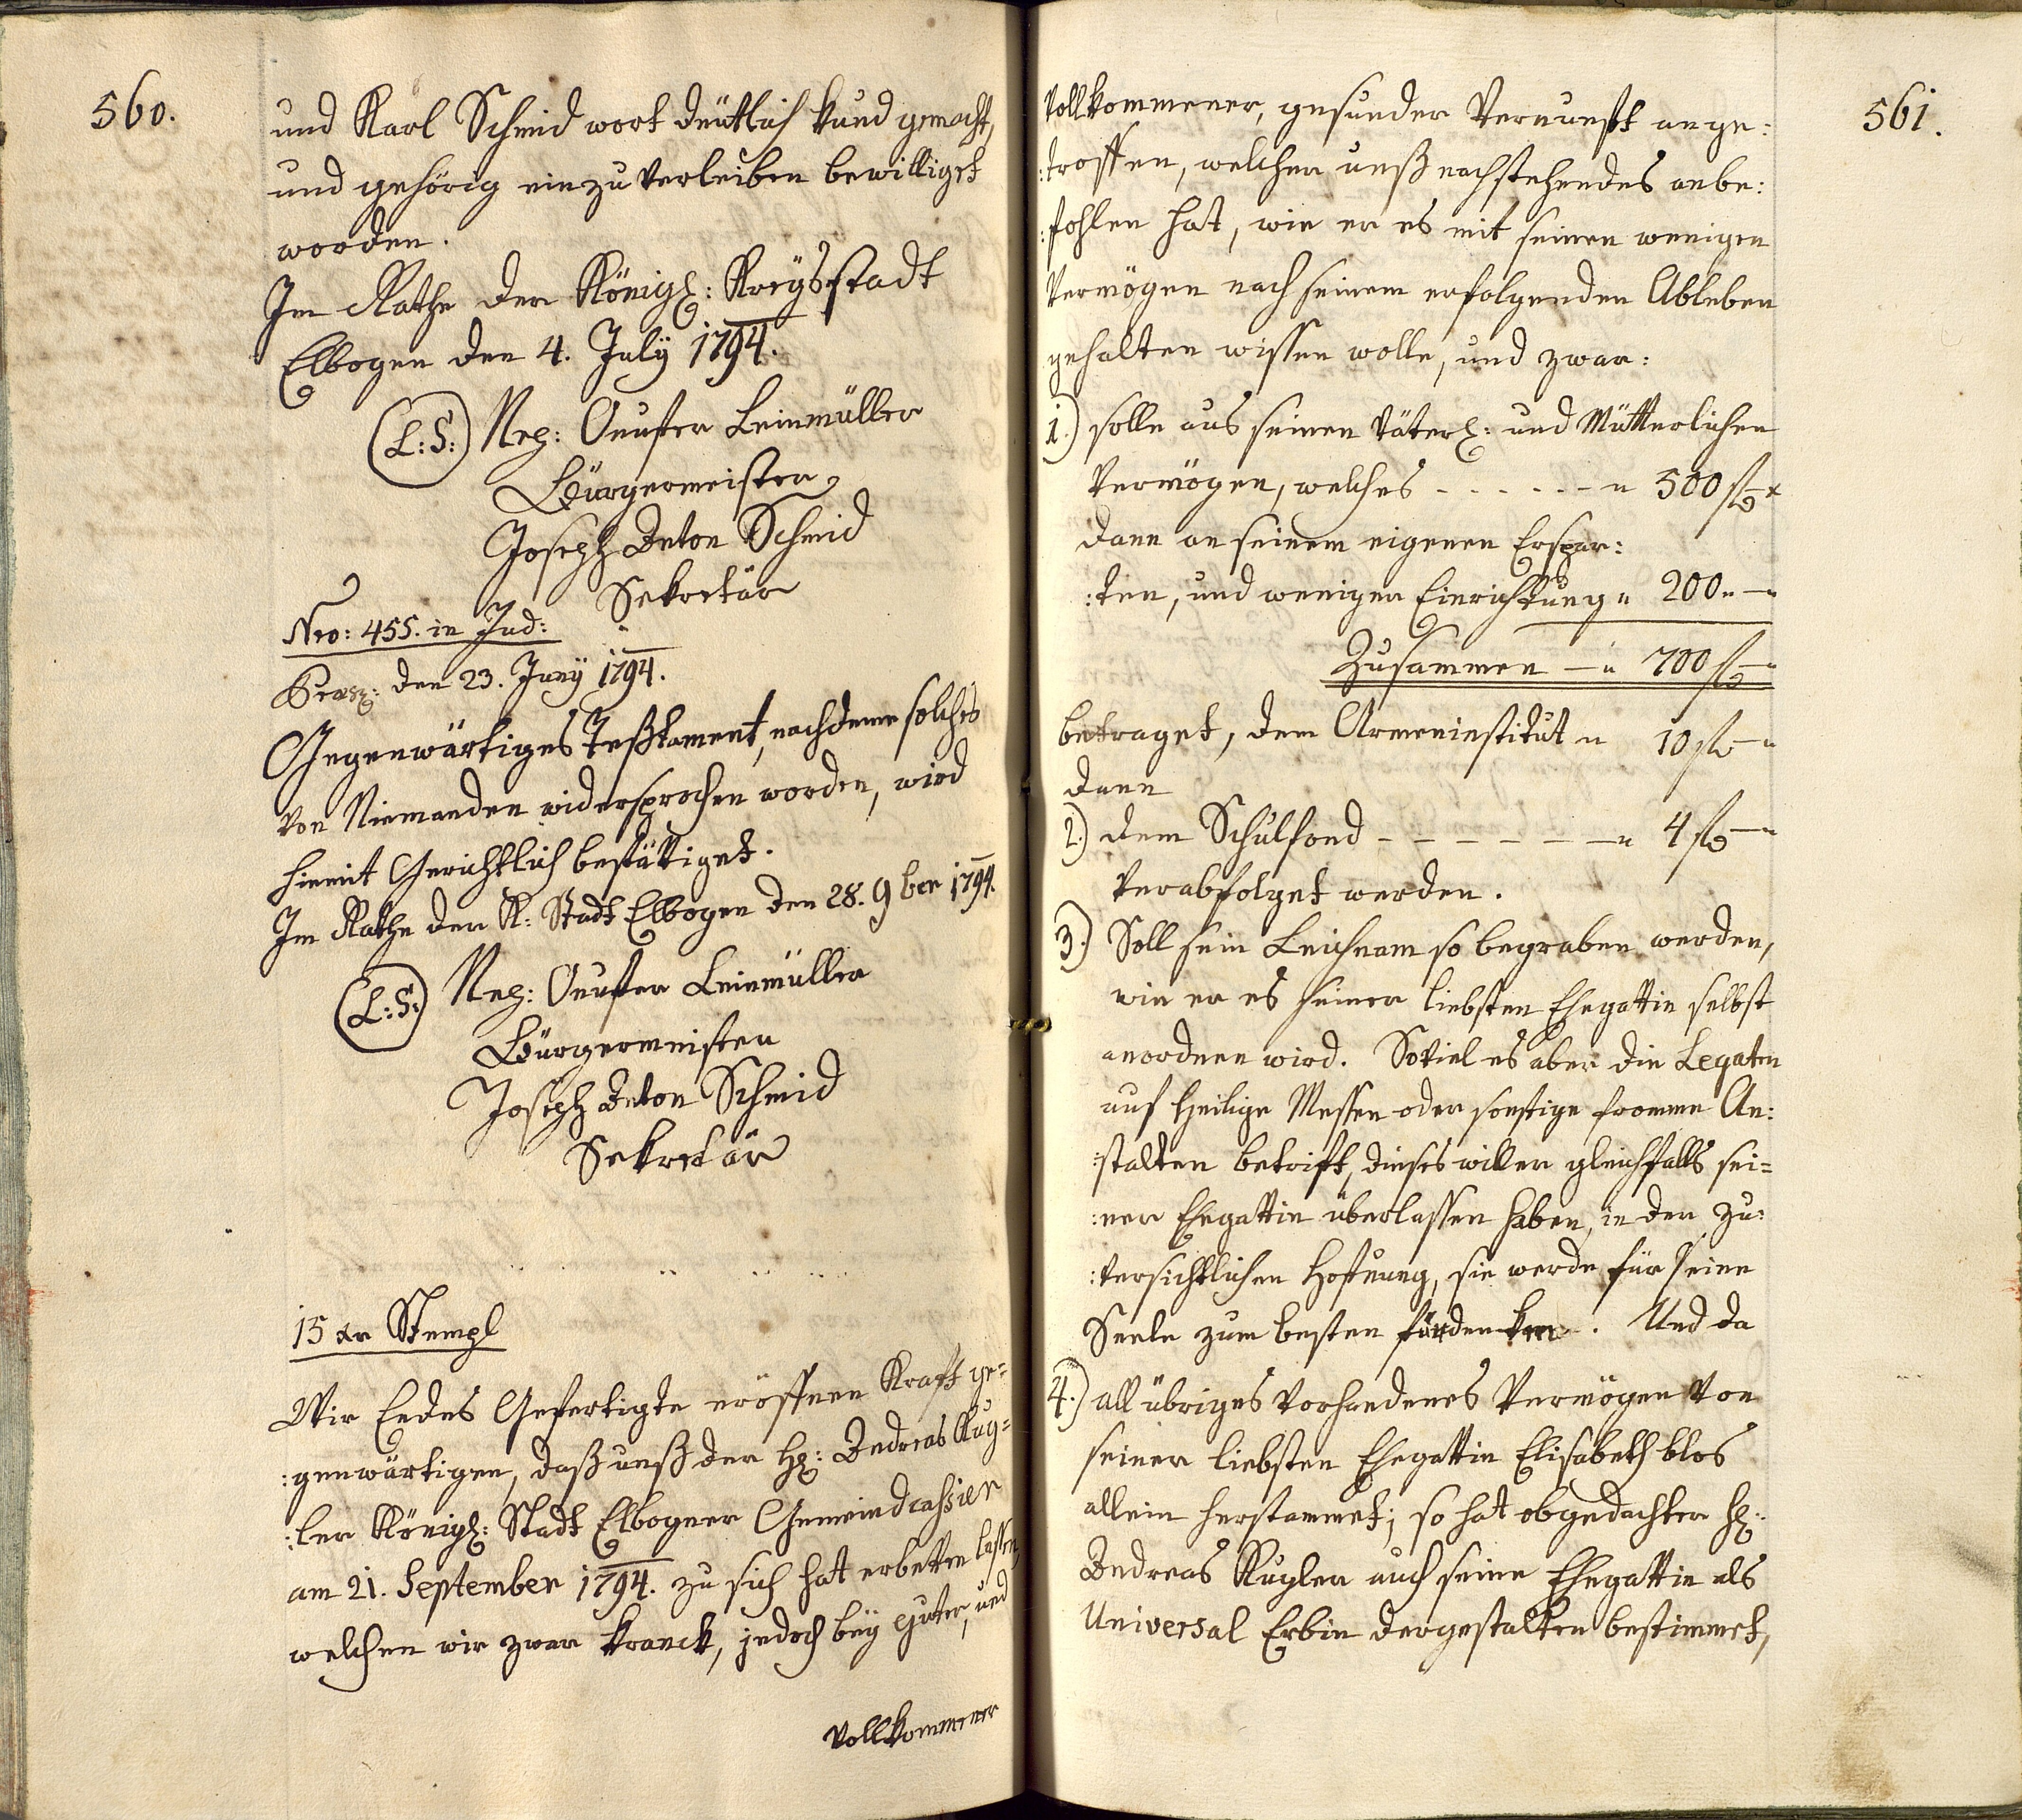 560.
und Karl Schmid wort deütlich kund gemacht,
und gehörig einzuverleiben bewilliget
worden.
Im Rathe der Königl: Kreysstadt
Elbogen den 4. July 1794.
(L:S:) Leinmüller
Bürgermeister
Joseph Anton Schmid
Sekretär
Nro: 455. in Jud:
den 23. Juny 1794.
Gegenwärtiges Testament, nachdeme solches
von Niemanden widersprochen worden, wird
hiemit Gerichtlich bestättiget.
Im Rathe der K: Stadt Elbogen den 28. 9ber 1794.
(L:S:) Leinmüller
Bürgermeister
Joseph Anton Schmid
Sekretär
15 xr Stempl
Wir Endes Gefertigte eröffnen Kraft ge=
:genwärtigen, daß unß der H: Andreas Kug=
:ler Königl: Stadt Elbogner Gemeindcassier
am 21. September 1794. zu sich hat erbetten lassen,
welchen wir zwar kranck, jedoch bey guter, und
vollkommener
561.
vollkommener, gesunder Vernunft ange:
:troffen, welcher unß nachstehendes anbe:
:fohlen hat, wie er es mit seinen wenigen
Vermögen nach seinem erfolgenden Ableben
gehalten wissen wolle, und zwar:
1.) solle aus seinen väterl: und Mütterlichen
Vermögen, welches - - - - - - " 500 f - x
dann an seinem eigenen Erspar:
:ten, und wenigen Einrichtung " 200 " - "
Zusammen - " 700 f - "
betraget, dem Armeninstitut " 10 f - "
dann
2.) dem Schulfond - - - - - - - " 4 f - "
verabfolget werden.
3.) Soll sein Leichnam so begraben werden,
wie er es seiner liebsten Ehegattin selbst
anordnen wird. Soviel es aber die Legaten
auf Heilige Messen oder sonstige fromme An:
:stalten betrift, dieses will er gleichfalls sei=
:ner Ehegattin überlassen haben, in der zu:
:versichtlichen Hofnung, sie werde für seine
Seele zum besten fürdenken. Und da
4.) all übriges vorhandenes Vermögen von
seiner liebsten Ehegattin Elisabeth blos
allein herstammet; so hat obgedachter H:
Andreas Kugler auch seine Ehegattin als
Universal Erbin dergestalten bestimmet,